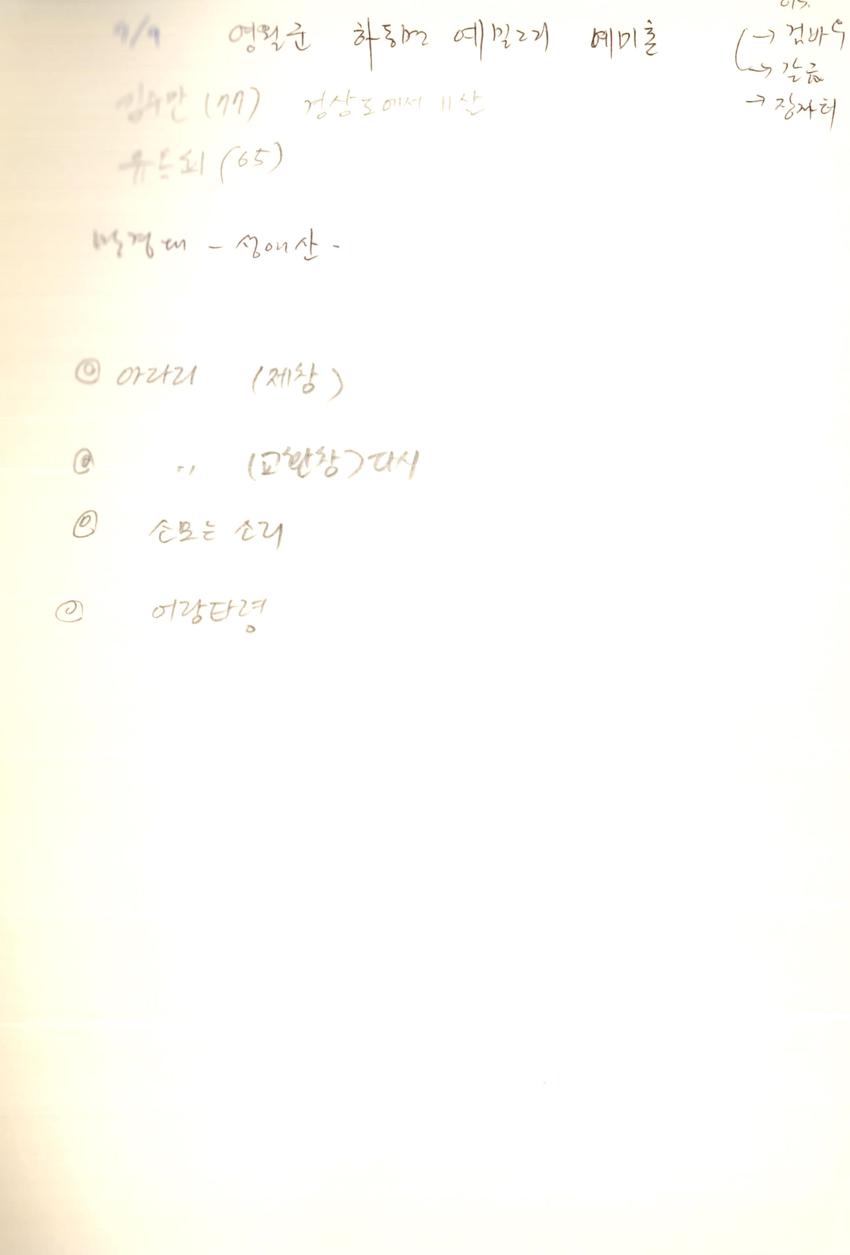 9/9 영월군 하동면 예밀2리 예미촌
→ 검바우
→ 갈금
→ 장자터
김수만 (77) 경상도에서
유돈뫼 (65)
- 성애산 -
◎ 아라리 (제창)
◎ 〃 (교환창) 다시
◎ 손모는 소리
◎ 어랑타령